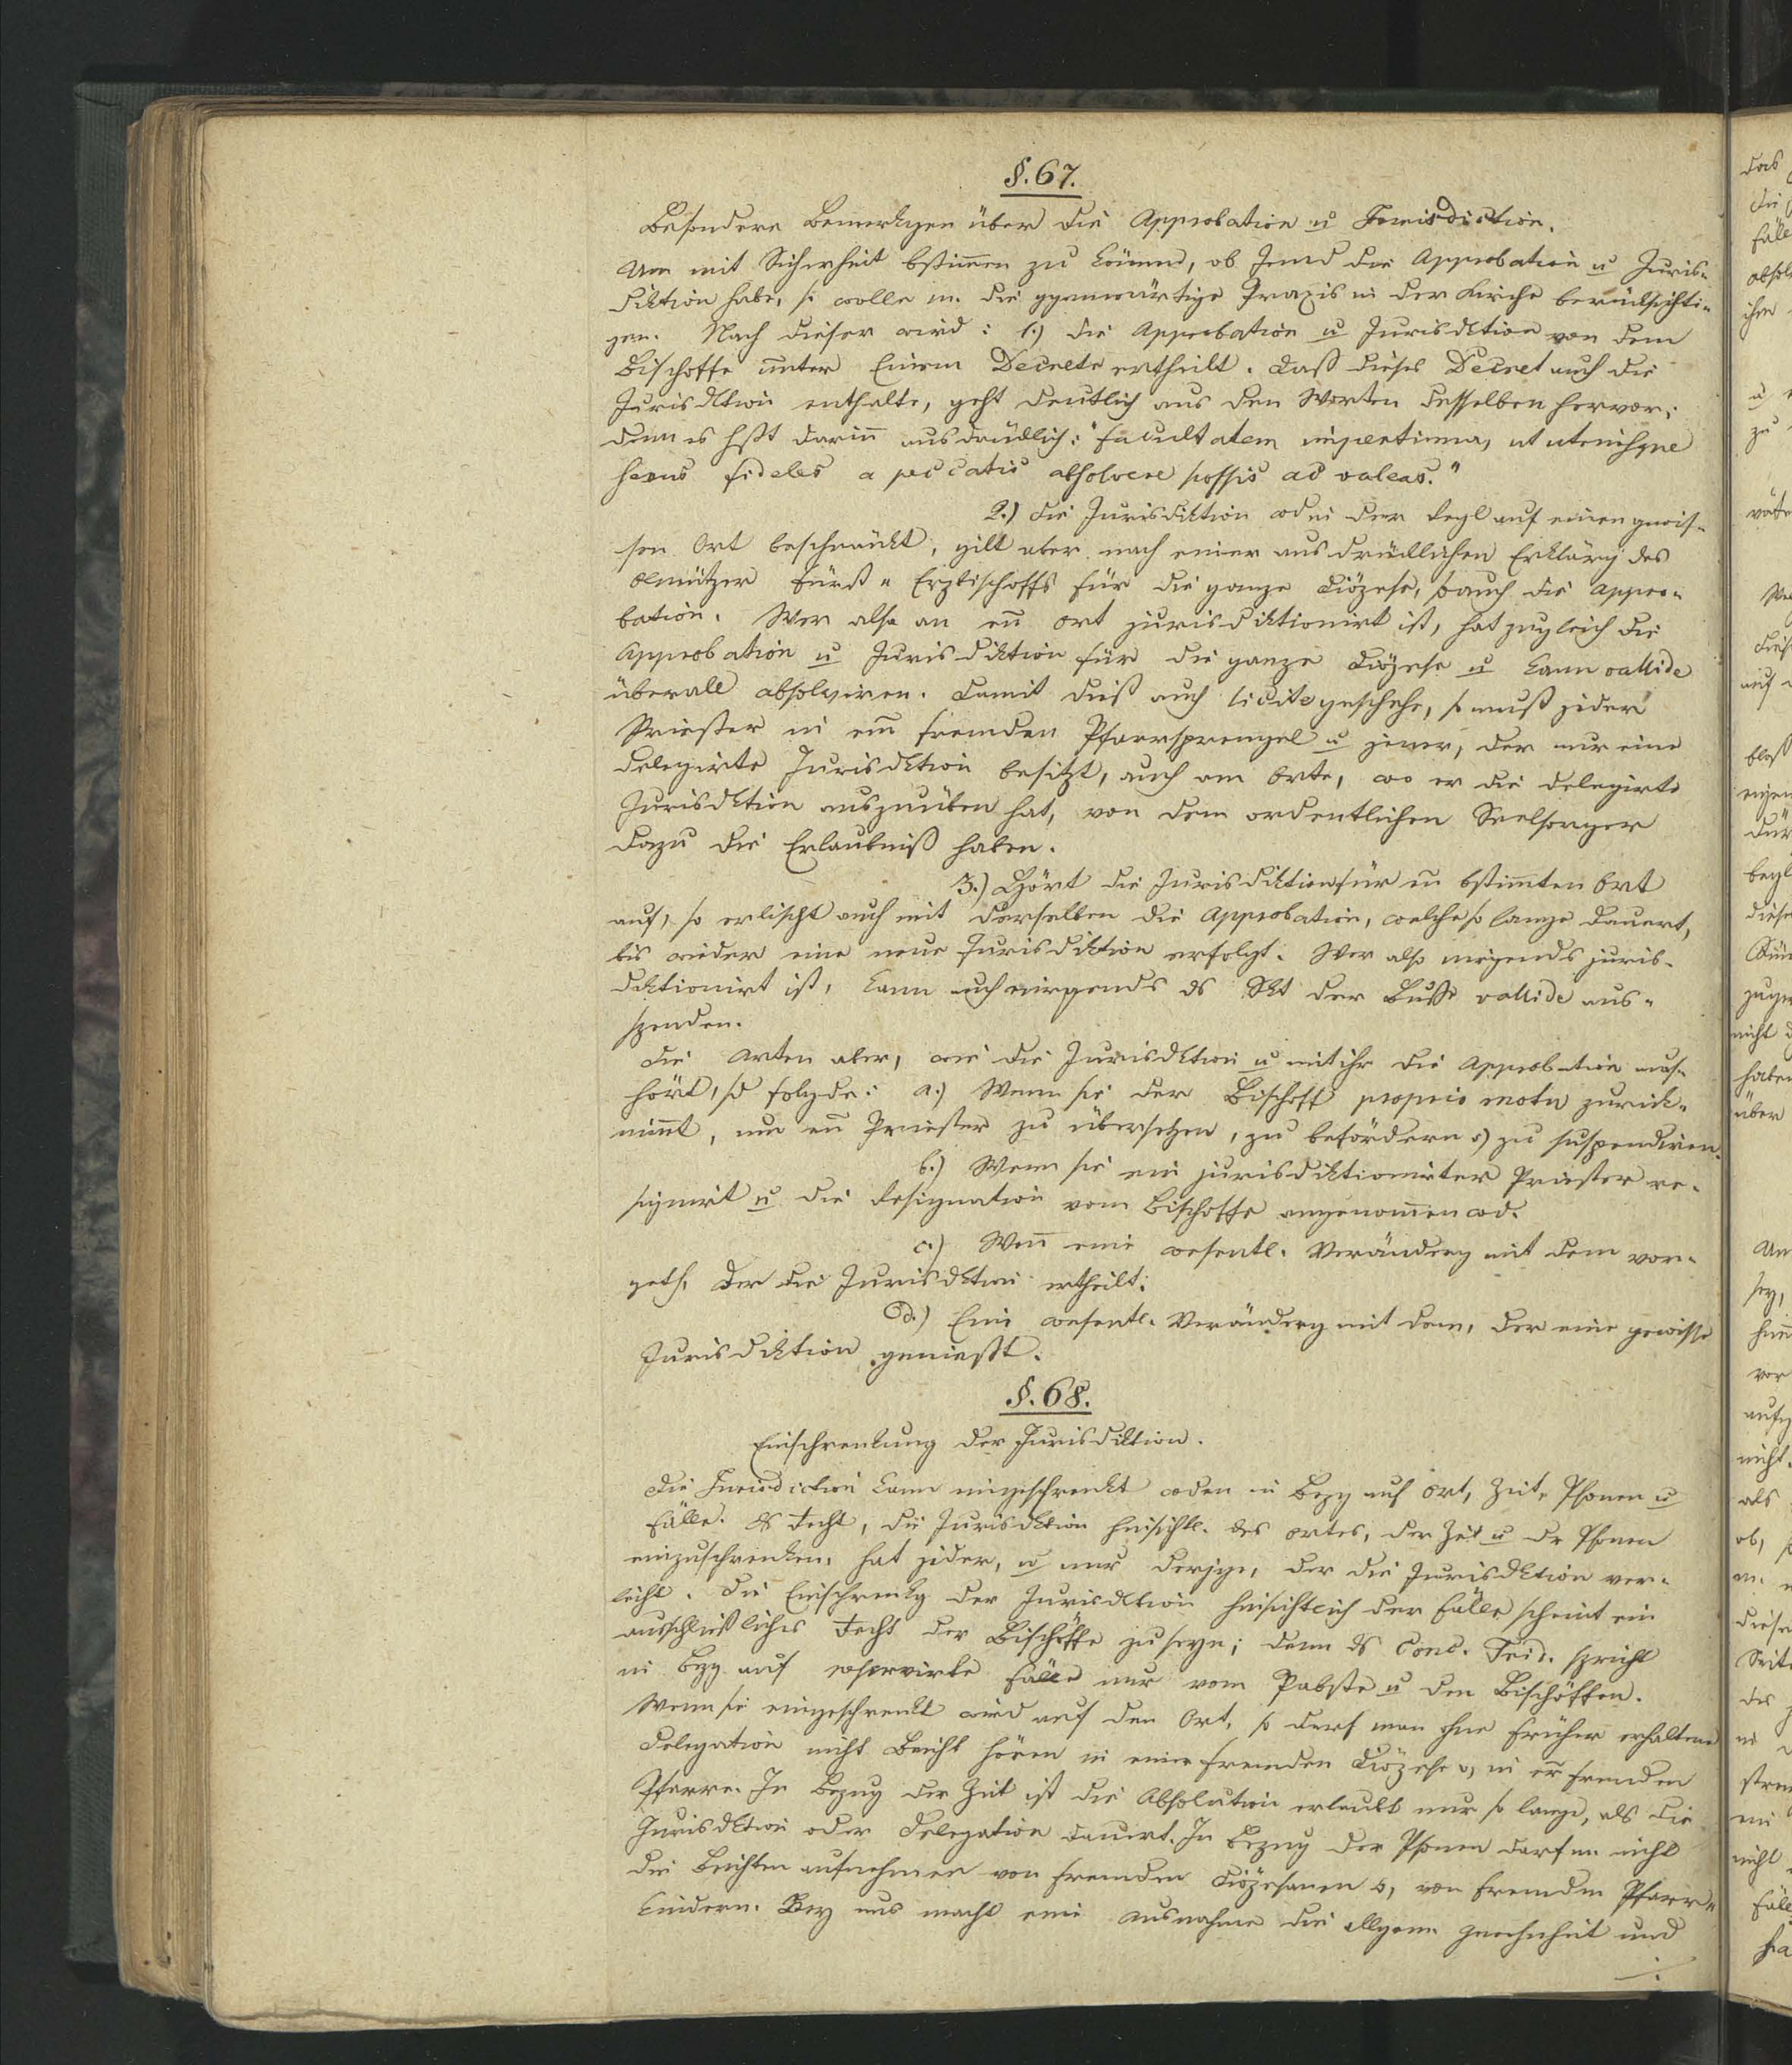 §. 67.
Besondere Bemerkgen über die Approbation u Jurisdiction.
Um mit Sicherheit bstimmen zu können, ob Jemd die Approbation u Juris-
diktion habe, so wolle m. die ggenwärtige Praxis in der Kirche berücksichti-
gen. Nach dieser wird: 1.) die Approbation u Jurisdktion von dem
Bischoffe unter Einem Decrete ertheilt. Daß dieses Decret auch die
Jurisdktion enthalte, geht deutlich aus den Worten desselben hervor;
denn es hßt darinn ausdrücklich: "facultatem impertimur, ut utriusque
sexus fideles a peccatis absolvere possis ac valeas."
2.) die Jurisdiktion wd in der Regl auf einen gwis-
sen Ort beschränkt, gilt aber nach einer ausdrücklichen Erklärg des
Olmützer Fürst-Erzbischoffs für die ganze Diözese, so auch die Appro-
bation. Wer also an einem Ort jurisdiktionirt ist, hat zugleich die
Approbation u Jurisdiktion für die ganze Diözese u kann vallide
überall absolviren. Damit dieß auch licite geschehe, so muß jeder
Priester in ein fremden Pfarrsprengel u jener, der nur eine
delegirte Jurisdktion besitzt, auch am Orte, wo er die delegirte
Jurisdktion auszuüben hat, von dem ordentlichen Seelsorger
dazu die Erlaubniß haben.
3.) Hört die Jurisdiktion für ein bstimten Ort
auf, so erlischt auch mit derselben die Approbation, welche so lange dauert,
bis wieder eine neue Jurisdiktion erfolgt. Wer also nirgends juris-
diktionirt ist, kann auch nirgends ds Skt der Busse vallide aus-
spenden.
Die Arten aber, wie die Jurisdktion u mit ihr die Approbation auf-
hört, sd folgde: a.) Wenn sie der Bischoff proprio motu zurück-
nimmt, um ein Priester zu übersetzen, zu befördern o) zu suspendiren.
b.) Wenn sie ein jurisdiktionirter Priester re-
signirt u die Resignation vom Bischoffe angenommen wd.
c.) Wenn eine wesentl. Veränderg mit dem vor-
geht, der die Jurisdktion ertheilt.
d.) Eine wesentl. Veränderg mit dem, der eine gewisse
Jurisdiktion genießt.
§. 68.
Einschrenkung der Jurisdiktion.
Die Jurisdiction kann eingeschrenkt wden in Bezg auf Ort, Zeit, Psonen u
Fälle. Ds Recht, die Jurisdktion hinsichtl. des Ortes, der Zeit u dr Psonen
einzuschrenken, hat jeder, u nur derjge, der die Jurisdktion ver-
leiht. Die Einschrenkg der Jurisdktion hinsichtlich der Fälle scheint ein
ausschließliches Recht der Bischöffe zu seyn; denn ds Conc. Trid. spricht
in Bezg auf reservirte Fälle nur vom Pabste u den Bischöffen.
Wenn sie eingeschrenkt wird auf den Ort, so darf man ohne früher erhaltene
Delegation nicht Beicht hören in einer fremden Diözese o, in er fremden
Pfarre. In Bezug der Zeit ist die Absolution erlaubt nur so lange, als die
Jurisdktion oder Delegation dauert. In Bezug der Psonen darf m nicht
die Beichten aufnehmen von fremden Diözesanen o, von fremden Pfarr-
kindern. Bey uns macht eine Ausnahme die allgem. Gwohnheit und